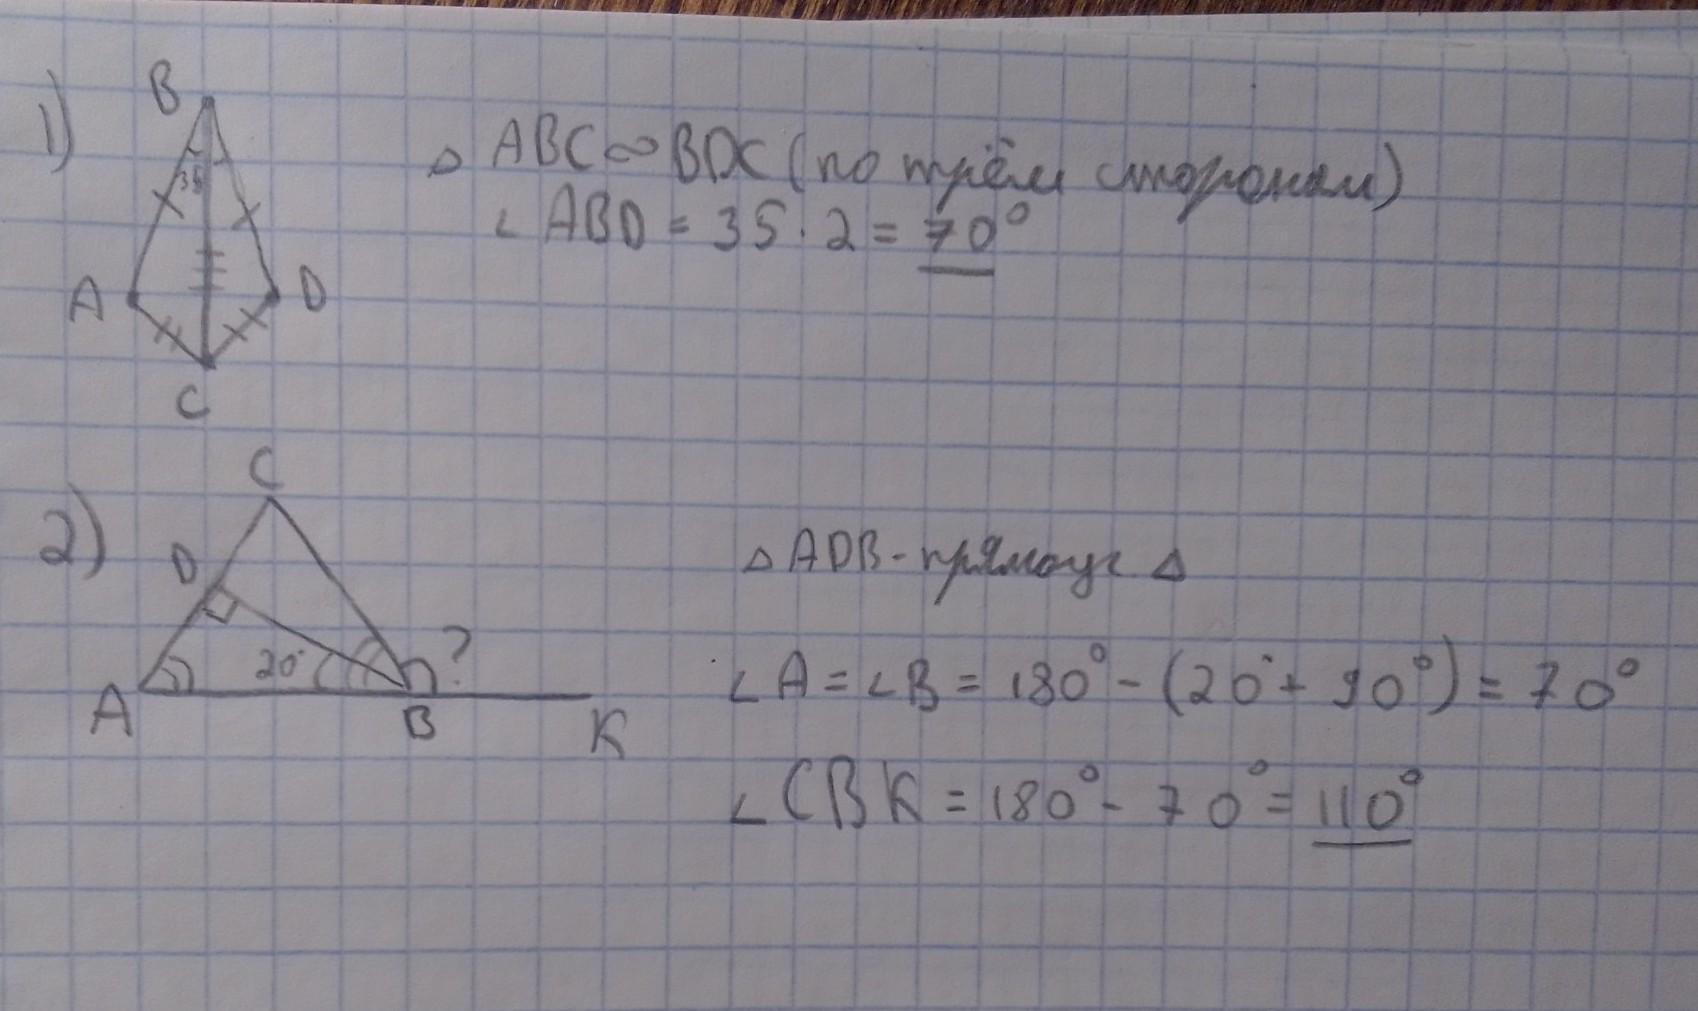 1)
B
35
A
D
C
△ ABC ∞ BDC (по трём сторонам)
∠ ABD = 35 · 2 = 70°
2)
C
D
20°
?
A
B
K
△ ADB - прямоуг △
∠ A = ∠ B = 180° - (20° + 90°) = 70°
∠ CBK = 180° - 70° = 110°